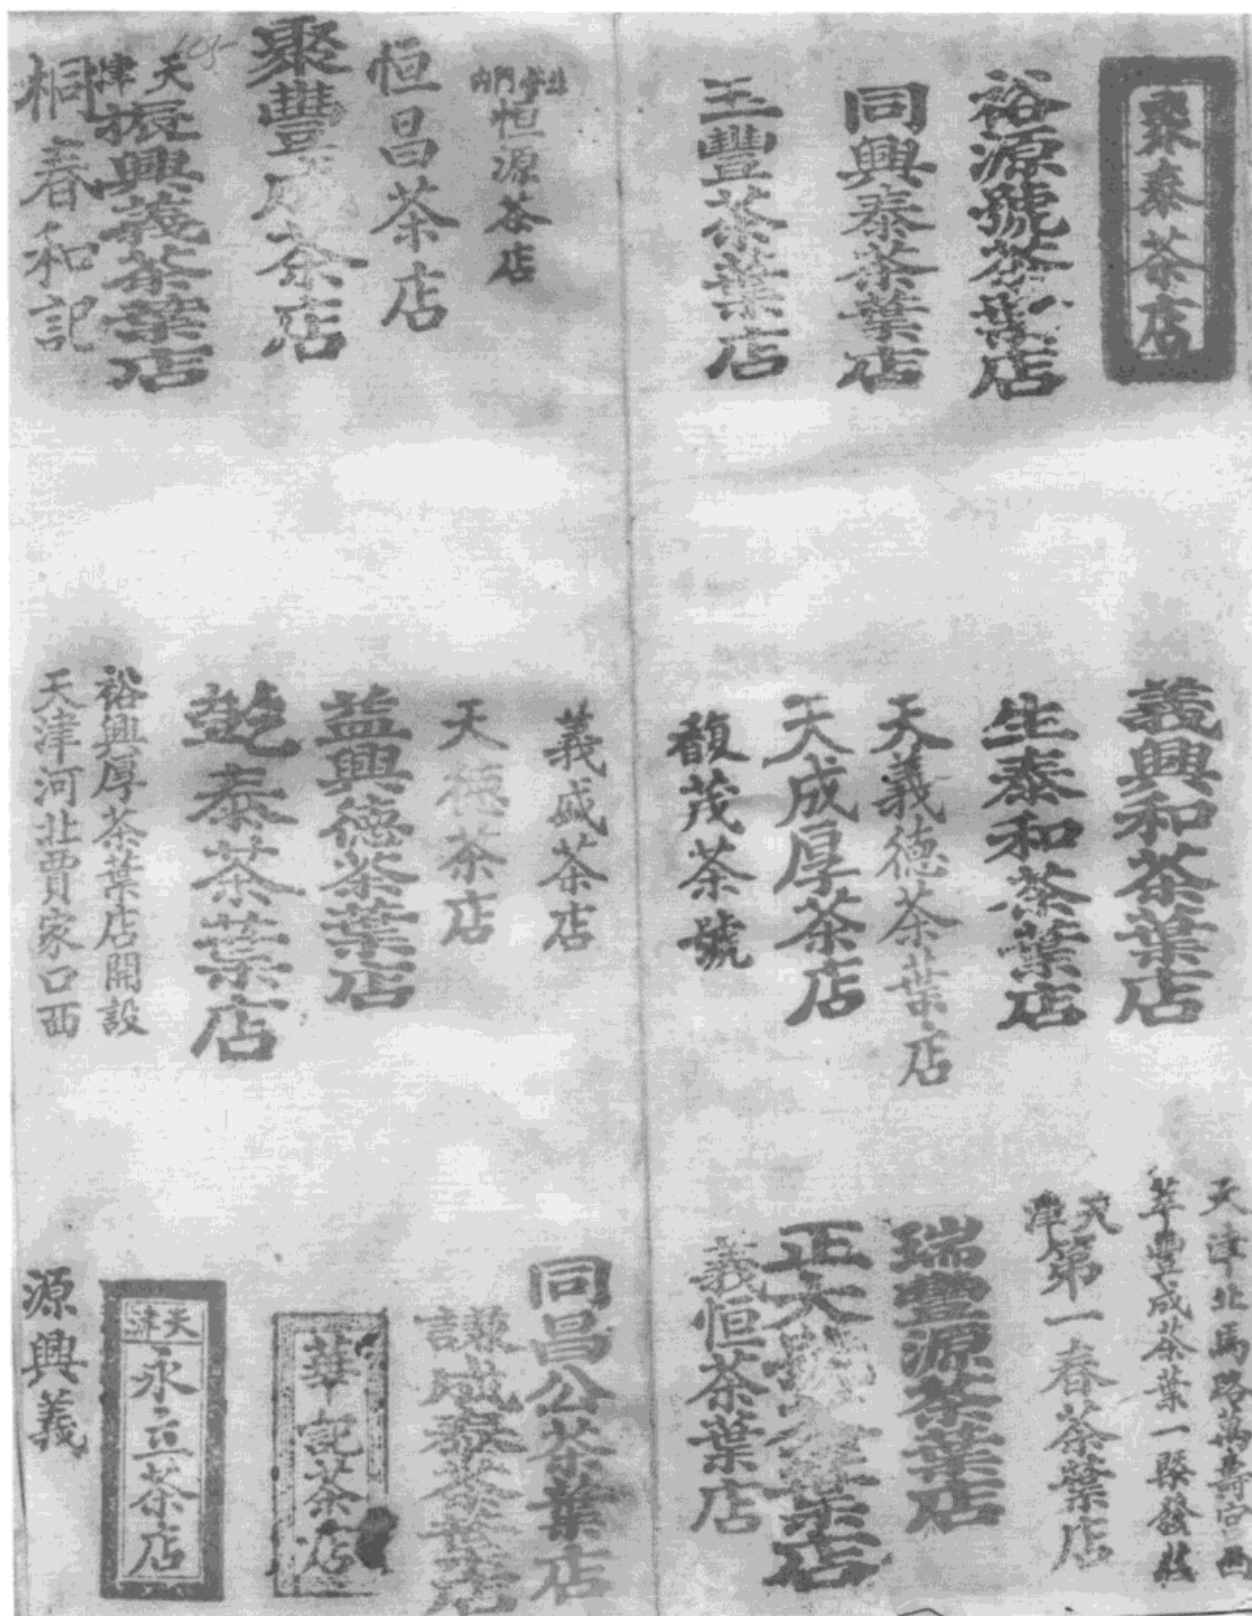 泰茶店
裕源號茶葉店
同興泰茶葉店
玉豐茶葉店
恒源茶店
恒昌茶店
聚豐茶店
天津
振興義茶葉店
桐春和記
義興和茶葉店
生泰和茶葉店
天義德茶葉店
天成厚茶店
馥茂茶號
義盛茶店
天德茶店
益興德茶葉店
乾泰茶葉店
裕興厚茶葉店開設
天津河北賈家口西
天津北馬路萬壽宮西
萃豐成茶葉一緊發莊
天津
第一春茶葉店
瑞豐源茶葉店
正大茶葉店
義恒茶葉店
同昌公茶葉店
謙成泰茶葉店
華記茶店
天津
永立茶店
源興義